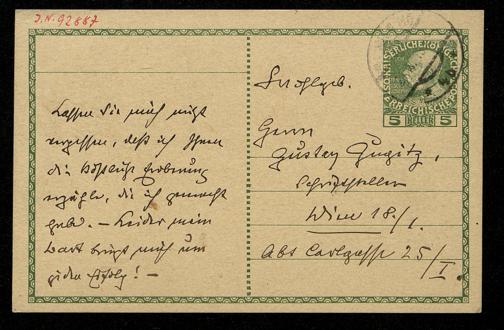 J.N. 92887
KAISERLICHE KÖNIGLICHE
ÖSTERREICHISCHE POST
5 HELLER 5
Lassen Sie mich nicht
vergessen, daß ich Ihnen
die köstlichste Eroberung
erzähle, die ich gemacht
habe. – Leider mein
Bart bringt mich um
jeden Erfolg! –
Hochlgeb.
Herrn
Gustav Gugitz,
Schriftsteller
Wien 18./1.
Abt Carlgasse 25/I.